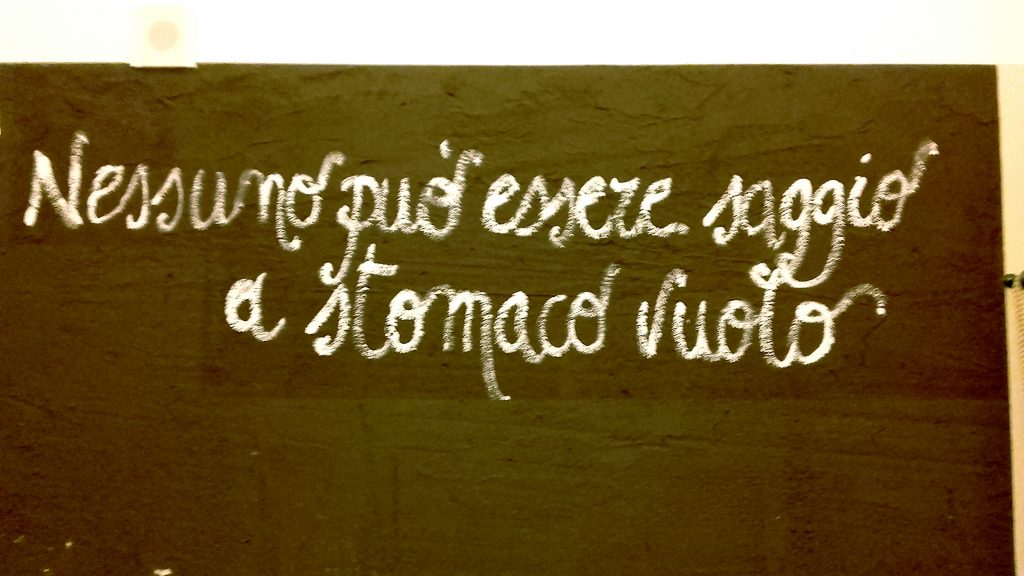 Nessuno può essere saggio
a stomaco vuoto